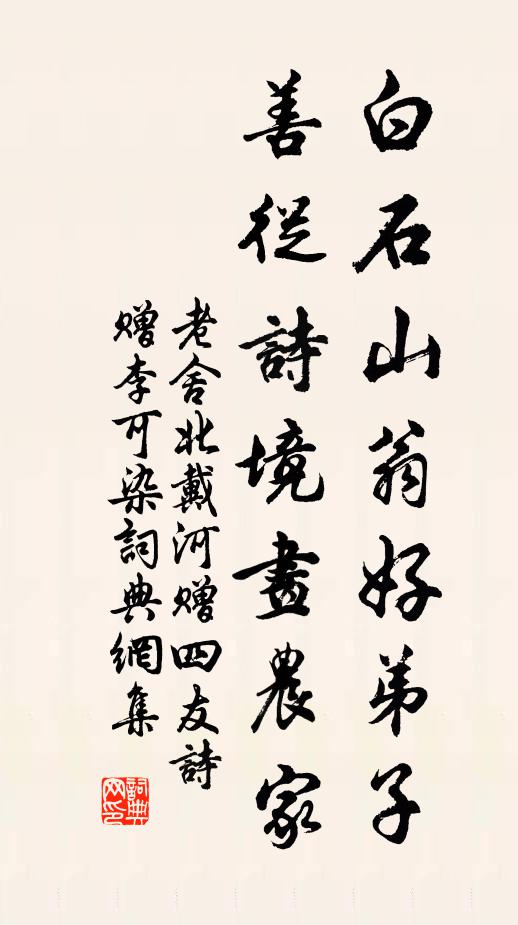 白石山翁好弟子
善從詩境畫農家
老舍北戴河赠四友詩
赠李可染詞典網集
詞典网印